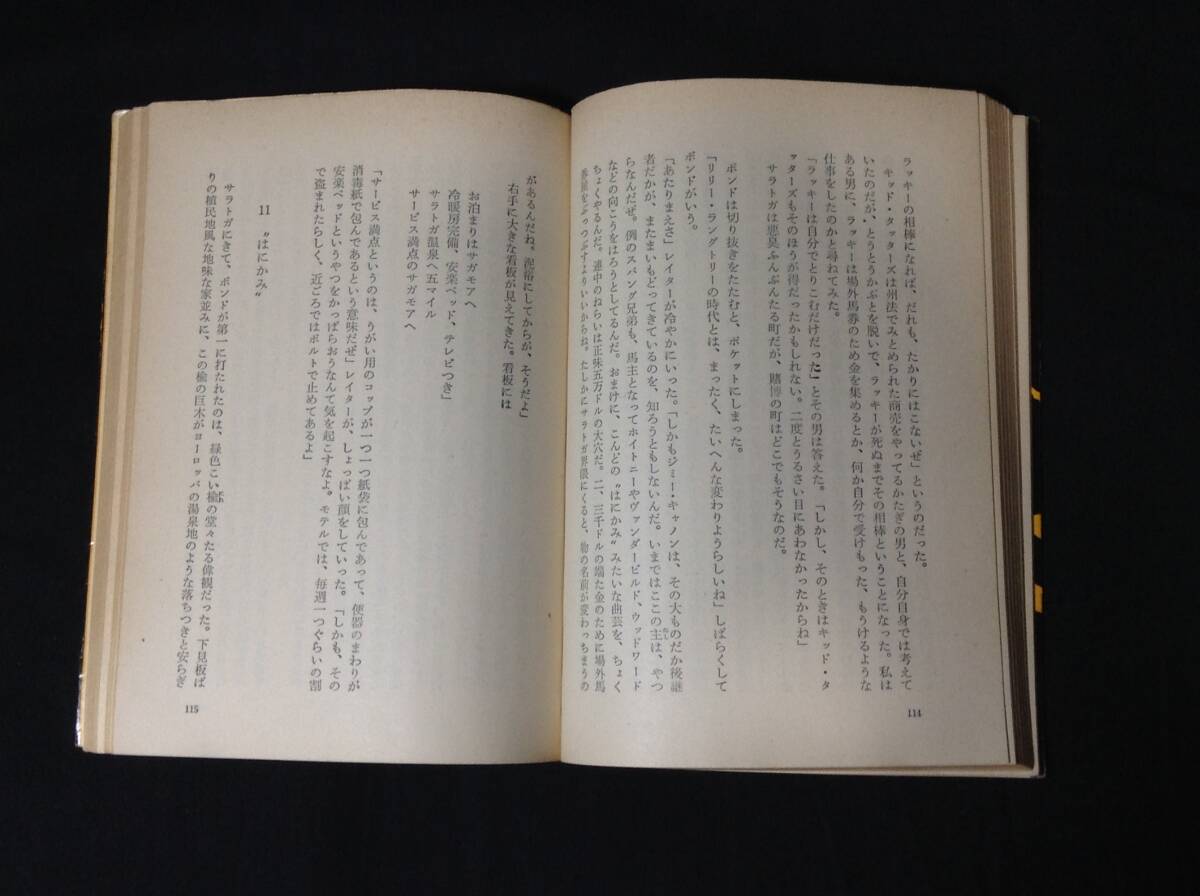 ラッキーの相棒になれば、だれも、たかりにはこないぜ」というのだった。
キッド・タッターズは州法でみとめられた商売をやってるかたぎの男と、自分自身では考えて
いたのだが、とうとうかぶとを脱いで、ラッキーが死ぬまでその相棒ということになった。私は
ある男に、ラッキーは場外馬券のため金を集めるとか、何か自分で受けもった、もうけるような
仕事をしたのかと尋ねてみた。
「ラッキーは自分でとりこむだけだった」とその男は答えた。「しかし、そのときはキッド・タ
ッターズもそのほうが得だったかもしれない。二度とうるさい目にあわなかったからね」
サラトガは悪臭ふんぷんたる町だが、賭博の町はどこでもそうなのだ。
ボンドは切り抜きをたたむと、ポケットにしまった。
「リリー・ラングトリーの時代とは、まったく、たいへんな変わりようらしいね」しばらくして
ボンドがいう。
「あたりまえさ」レイターが冷やかにいった。「しかもジミー・キャノンは、その大ものだか後継
者だかが、またまいもどってきているのを、知ろうともしないんだ。いまではここの主は、やつ
らなんだぜ。例のスパング兄弟も、馬主となってホイトニーやヴァンダービルド、ウッドワード
などの向こうをはろうとしてるんだ。おまけに、こんどの〝はにかみ〟みたいな曲芸を、ちょく
ちょくやるんだ。連中のねらいは正味五万ドルの大穴だ。二、三千ドルの端た金のために場外馬
券屋をぶっつぶすよりいいからね。たしかにサラトガ界隈にくると、物の名前が変わっちまうの
114
があるんだね。泥浴にしてからが、そうだよ」
右手に大きな看板が見えてきた。看板には
お泊まりはサガモアへ
冷暖房完備、安楽ベッド、テレビつき」
サラトガ温泉へ五マイル
サービス満点のサガモアへ
「サービス満点というのは、うがい用のコップが一つ一つ紙袋に包んであって、便器のまわりが
消毒紙で包んであるという意味だぜ」レイターが、しょっぱい顔をしていった。「しかも、その
安楽ベッドというやつをかっぱらおうなんて気を起こすなよ。モテルでは、毎週一つぐらいの割
で盗まれたらしく、近ごろではボルトで止めてあるよ」
11 〝はにかみ〟
サラトガにきて、ボンドが第一に打たれたのは、緑色こい楡の堂々たる偉観だった。下見板ば
りの植民地風な地味な家並みに、この楡の巨木がヨーロッパの湯泉地のような落ちつきと安らぎ
115